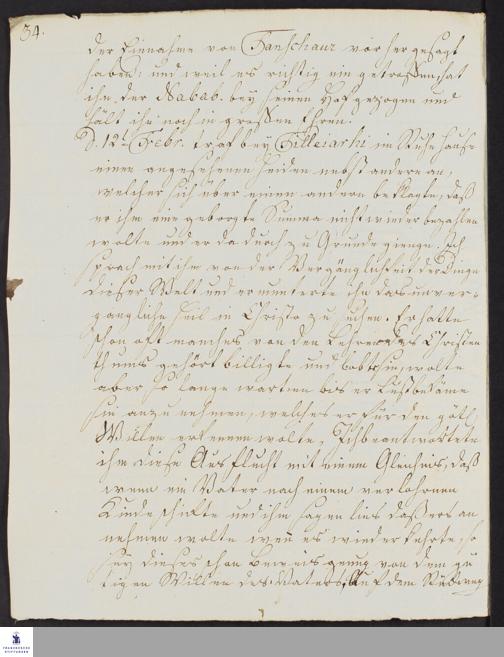 34.
der Einnahme von Tanschaur vorhergesagt
haben; und weil es richtig eingetroffen, hat
ihn der Nabab bey seinen Hof gezogen und
hält ihn noch in großen Ehren.
D. 12t Febr. traf bey Tilleiarhi im Ruhehause
einen angesehenen Heiden nebst andern an,
welcher sich über einen andern beklagte, daß
er ihm eine geborgte Summa nicht wieder bezahlen
wolte und er dadurch zu Grunde gienge. Ich
sprach mit ihm von der Vergänglichkeit der Dinge
dieser Welt und ermunterte ihn das unver-
gängliche Heil in Christo zu suchen. Er hatte
schon oft manches von den Lehren des Christen
thums gehört billigte und lobte sie, wolte
aber so lange warten bis er Lust bekäme
sie anzunehmen, welches er für den göttl.
Willen erkennen wolte. Ich beantwortete
ihm diese Ausflucht mit einem Gleichnis, daß
wenn ein Vater nach einem verlohrnen
Kinde schikte und ihm sagen lies daß ers an
nehmen wolte wen es wieder kehrte, so
sey dieses schon Beweis genug von dem gü
tigen Willen des Vaters. Auf dem Rückweg
FRANCKESCHE
STIFTUNGEN